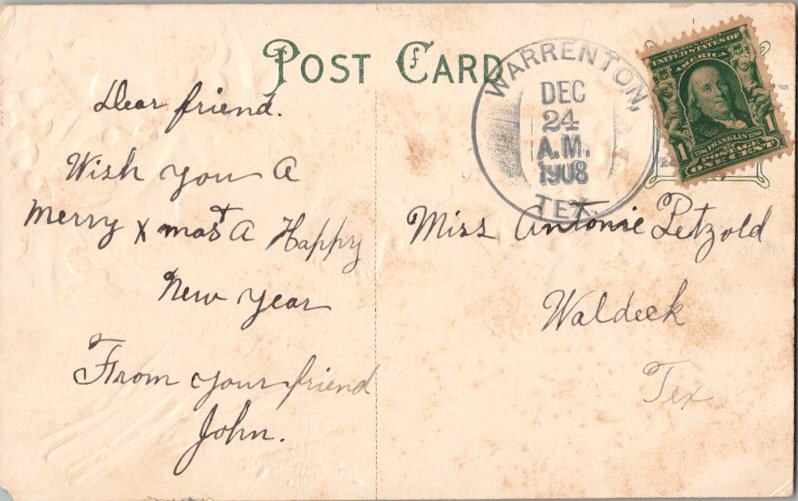 POST CARD
WARRENTON,
DEC
24
A.M.
1908
TEX.
UNITED STATES OF
AMERICA
FRANKLIN
1 1
POSTAGE
ONE CENT
Dear friend.
Wish you A
Merry Xmas & A Happy
New year
From your friend
John.
Miss Antonie Petzold
Waldeck
Tex